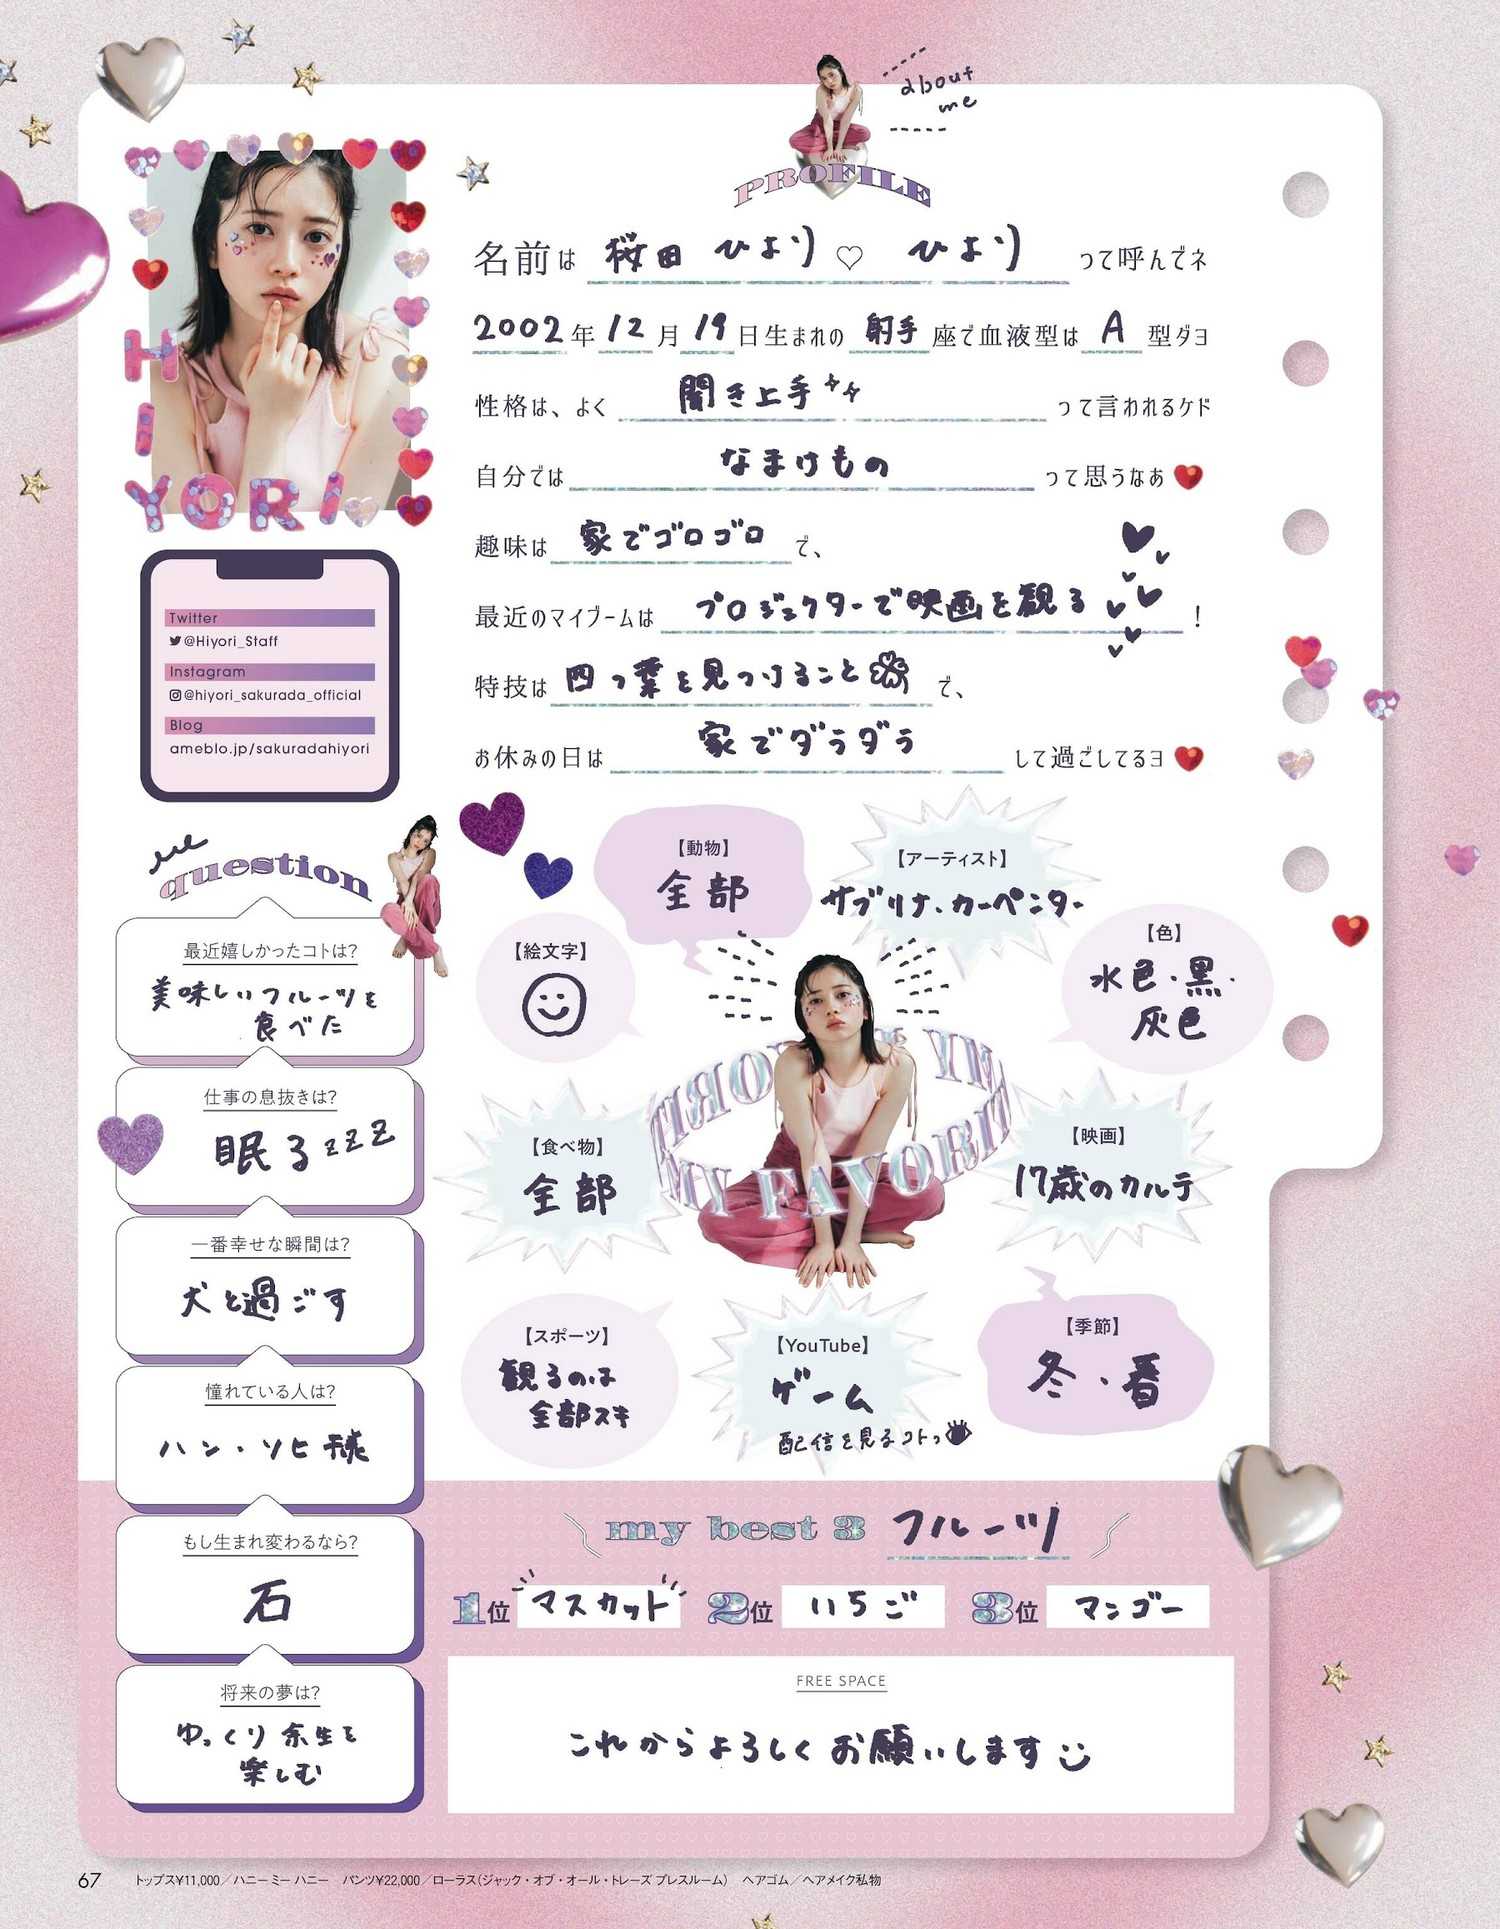 about
me
PROFILE
名前は 桜田 ひより♡ ひより って呼んでネ
2002年12月19日生まれの射手座で血液型はA型ダヨ
性格は、よく 聞き上手 って言われるケド
自分では なまけもの って思うなあ
趣味は 家でゴロゴロ で、
最近のマイブームは プロジェクターで映画を観る !
特技は 四つ葉を見つけること で、
お休みの日は 家でダラダラ して過ごしてるヨ
HIYORI
Twitter
@Hiyori_Staff
Instagram
@hiyori_sakurada_official
Blog
ameblo.jp/sakuradahiyori
question
最近嬉しかったコトは?
美味しいフルーツを
食べた
仕事の息抜きは?
眠るzzz
一番幸せな瞬間は?
犬と過ごす
憧れている人は?
ハン・ソヒ様
もし生まれ変わるなら?
石
将来の夢は?
ゆっくり余生を
楽しむ
【動物】
全部
【アーティスト】
サブリナ・カーペンター
【絵文字】
【色】
水色・黒・
灰色
MY FAVORITE
【食べ物】
全部
【映画】
17歳のカルテ
【スポーツ】
観るのは
全部スキ
【YouTube】
ゲーム
配信を見るコトっ
【季節】
冬・春
my best 3 フルーツ
1位 マスカット 2位 いちご 3位 マンゴー
FREE SPACE
これからよろしくお願いします
67 トップス¥11,000／ハニー ミー ハニー パンツ¥22,000／ローラス(ジャック・オブ・オール・トレーズ プレスルーム) ヘアゴム／ヘアメイク私物